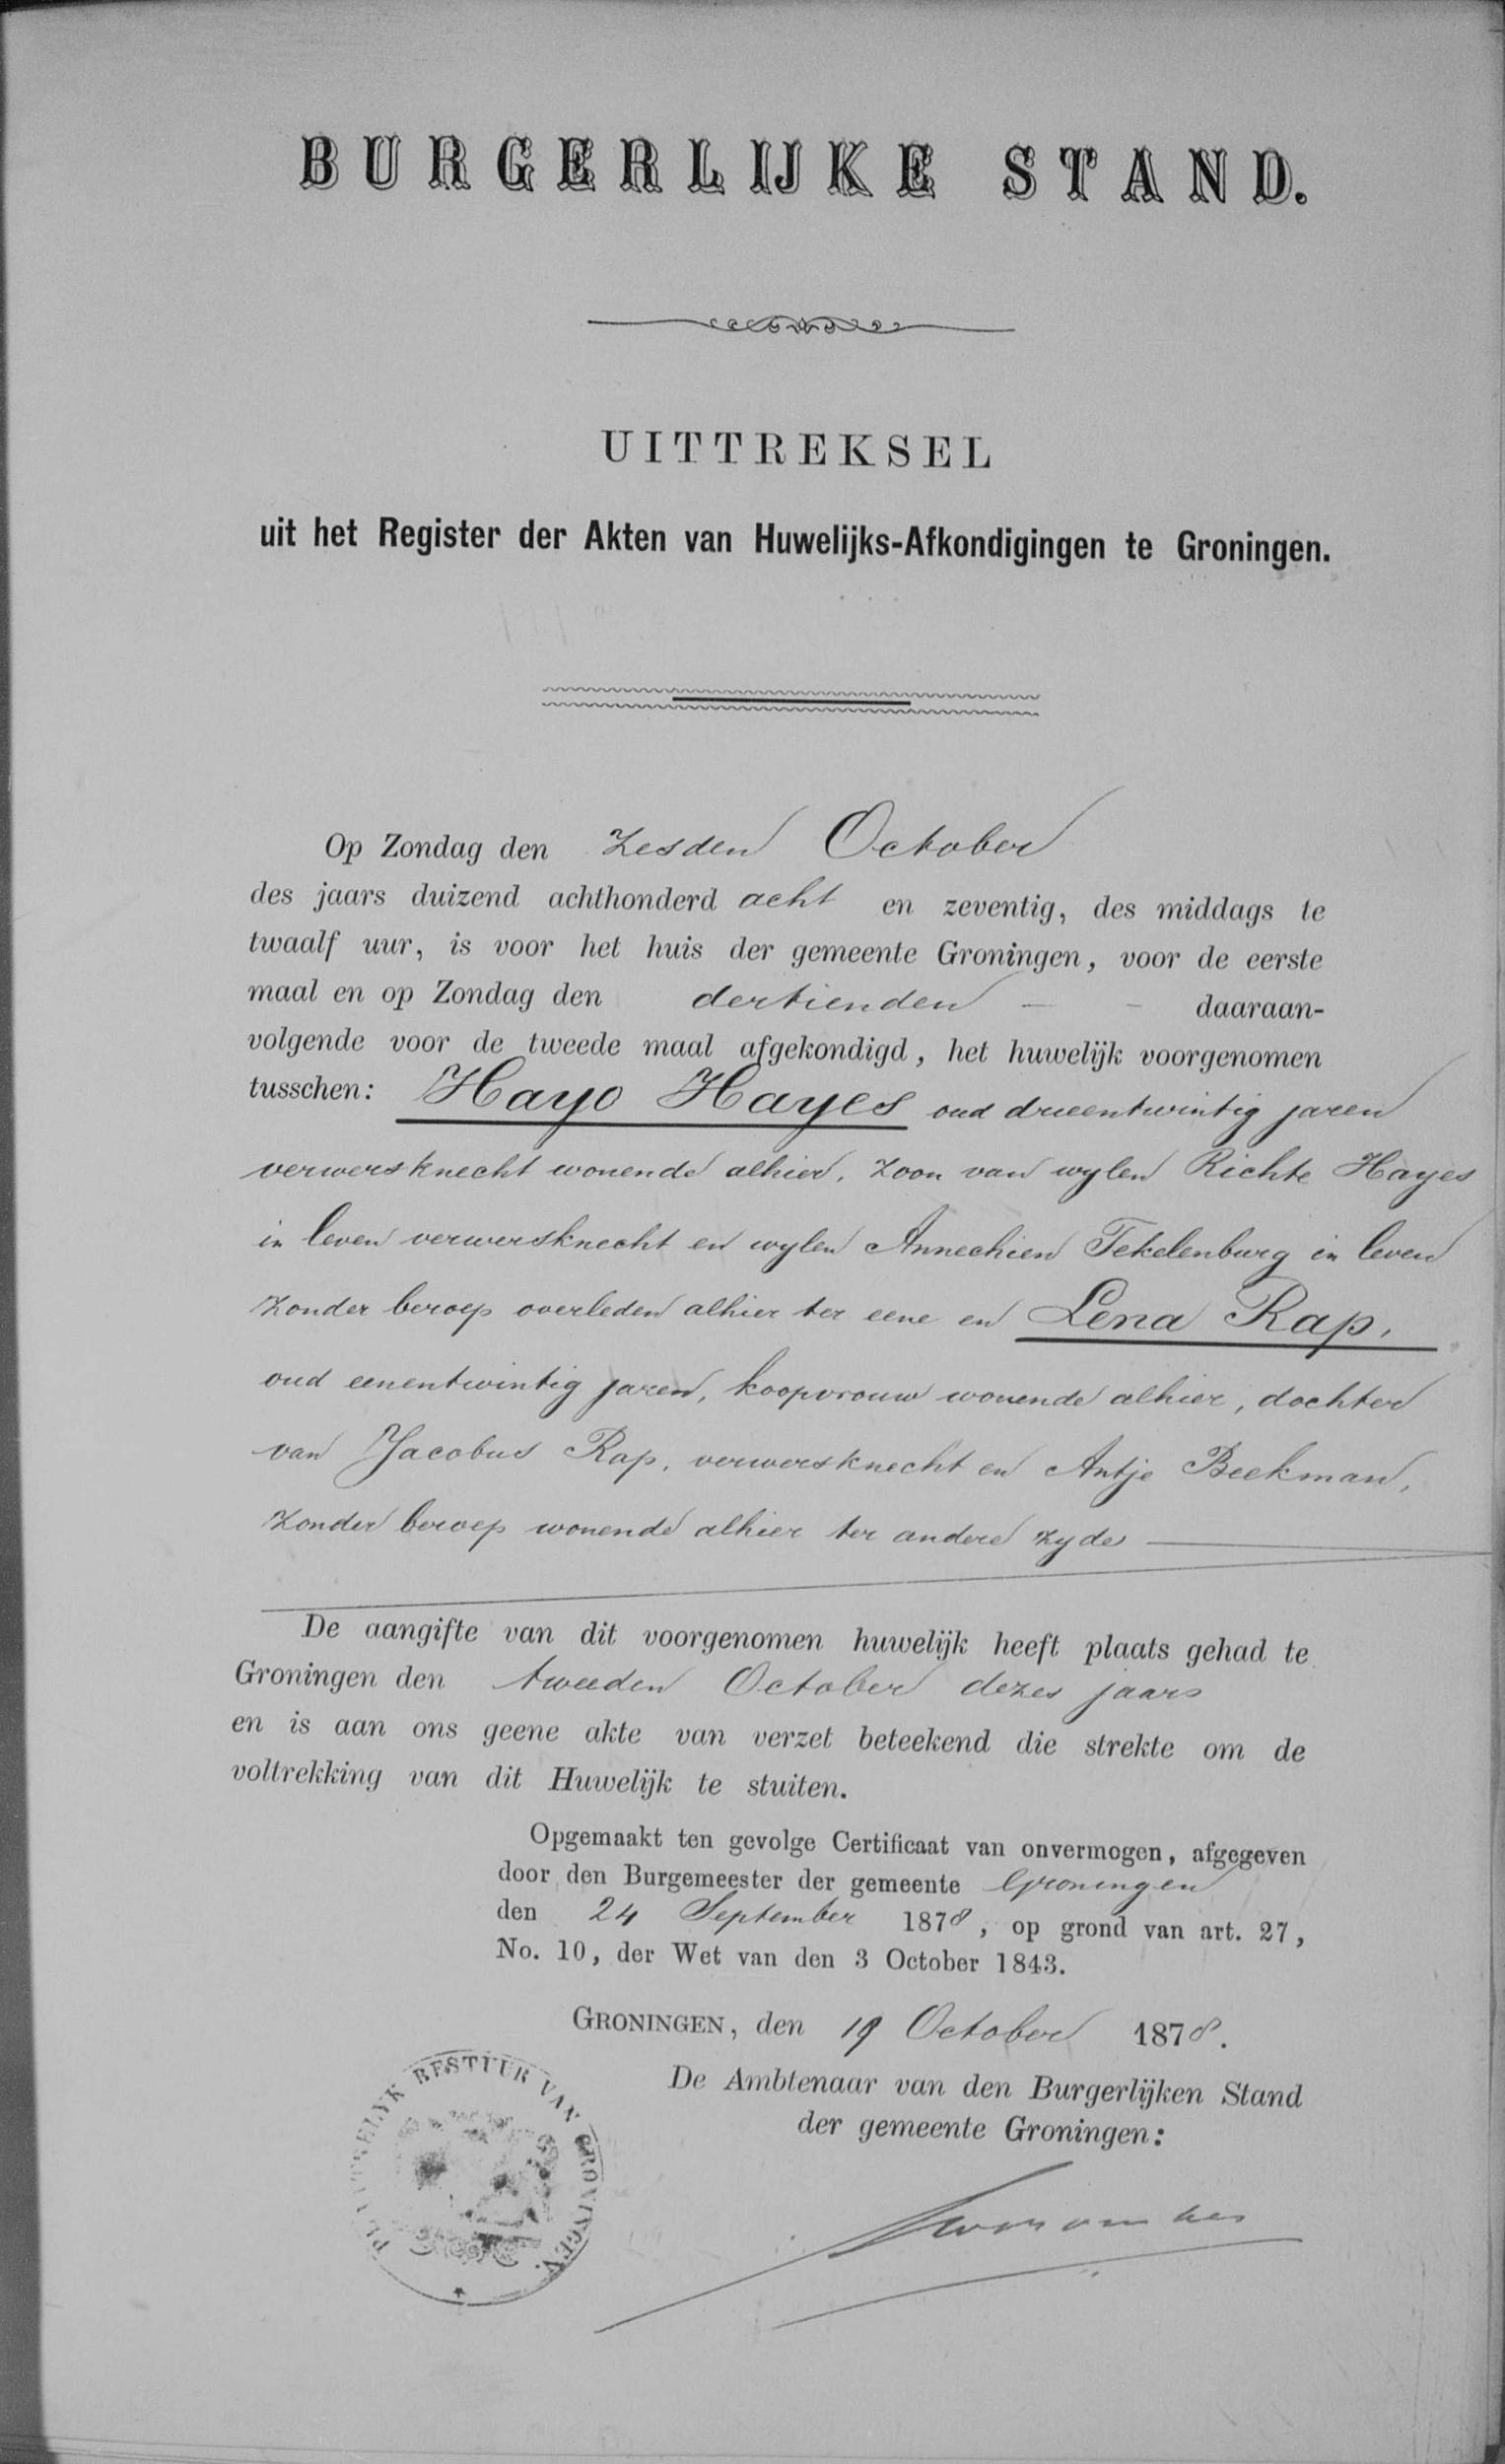 BURGERLIJKE STAND.
UITTREKSEL
uit het Register der Akten van Huwelijks-Afkondigingen te Groningen.
Op Zondag den zesden October
des jaars duizend achthonderd acht en zeventig, des middags te
twaalf uur, is voor het huis der gemeente Groningen, voor de eerste
maal en op Zondag den dertienden - - daaraan-
volgende voor de tweede maal afgekondigd, het huwelijk voorgenomen
tusschen: Hayo Hayes oud drieentwintig jaren
verwersknecht wonende alhier, zoon van wylen Richte Hayes
in leven verwersknecht en wylen Annechien Tekelenburg in leven
zonder beroep overleden alhier ter eene en Lena Rap,
oud eenentwintig jaren, koopvrouw wonende alhier, dochter
van Jacobus Rap, verwersknecht en Antje Beekman,
zonder beroep wonende alhier ter andere zyde
De aangifte van dit voorgenomen huwelijk heeft plaats gehad te
Groningen den tweeden October dezes jaars
en is aan ons geene akte van verzet beteekend die strekte om de
voltrekking van dit Huwelijk te stuiten.
Opgemaakt ten gevolge Certificaat van onvermogen, afgegeven
door den Burgemeester der gemeente Groningen
den 24 September 1878, op grond van art. 27,
No. 10, der Wet van den 3 October 1843.
GRONINGEN, den 19 October 1878.
De Ambtenaar van den Burgerlijken Stand
der gemeente Groningen:
BESTUUR VAN GRONINGEN.